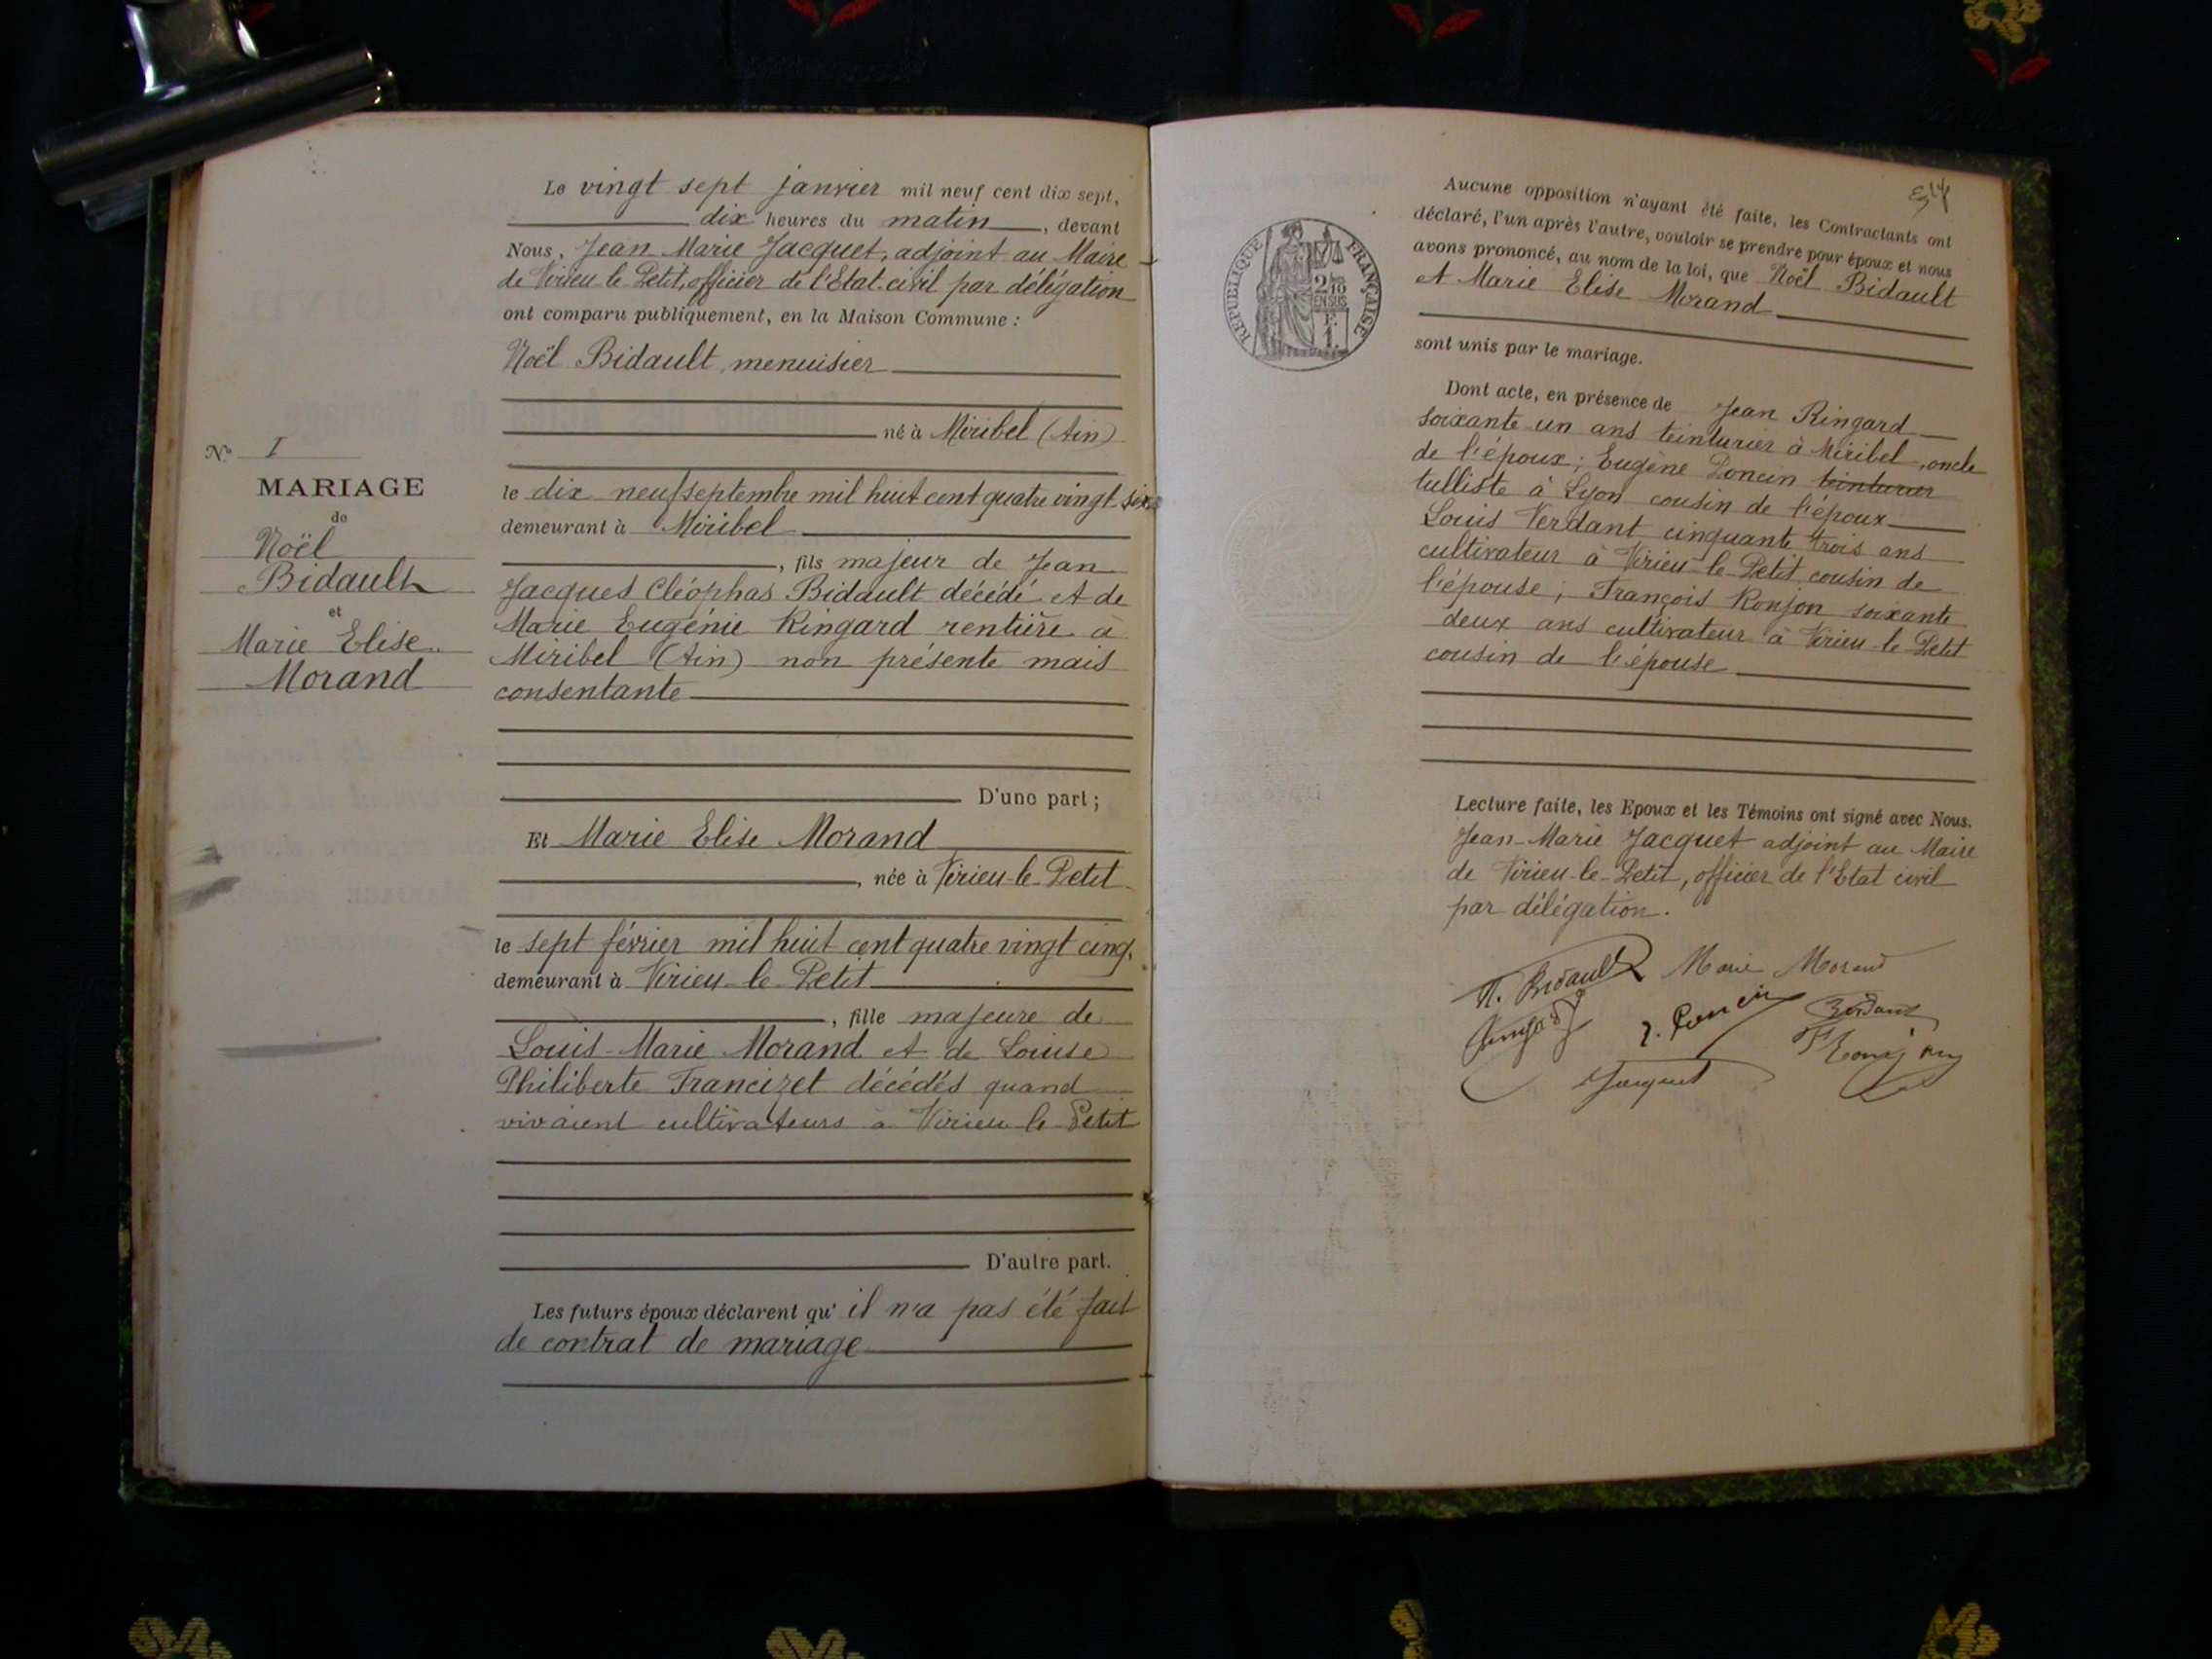 Le vingt sept janvier mil neuf cent dix sept,
dix heures du matin, devant
Nous, Jean Marie Jacquet, adjoint au Maire
de Virieu le Petit, officier de l'Etat-civil par délégation
ont comparu publiquement, en la Maison Commune :
Noël Bidault, menuisier
né à Miribel (Ain)
le dix neuf septembre mil huit cent quatre vingt six
demeurant à Miribel
, fils majeur de Jean
Jacques Cléophas Bidault décédé et de
Marie Eugénie Ringard rentière à
Miribel (Ain) non présente mais
consentante
D'une part ;
Et Marie Elise Morand
, née à Virieu-le-Petit
le sept février mil huit cent quatre vingt cinq,
demeurant à Virieu-le-Petit
, fille majeure de
Louis-Marie Morand et de Louise
Philiberte Francizet décédés quand
vivaient cultivateurs à Virieu-le-Petit
D'autre part.
Les futurs époux déclarent qu' il n'a pas été fait
de contrat de mariage
N° 1
MARIAGE
de
Noël
Bidault
et
Marie Elise
Morand
REPUBLIQUE FRANÇAISE
2/10
EN SUS
F.
1.
Aucune opposition n'ayant été faite, les Contractants ont
déclaré, l'un après l'autre, vouloir se prendre pour époux et nous
avons prononcé, au nom de la loi, que Noël Bidault
et Marie Elise Morand
sont unis par le mariage.
Dont acte, en présence de Jean Ringard
soixante un ans teinturier à Miribel, oncle
de l'époux ; Eugène Poncin teinturier
tulliste à Lyon cousin de l'époux
Louis Verdant cinquante trois ans
cultivateur à Virieu-le-Petit cousin de
l'épouse ; François Ronjon soixante
deux ans cultivateur à Virieu-le-Petit
cousin de l'épouse
Lecture faite, les Epoux et les Témoins ont signé avec Nous.
Jean-Marie Jacquet adjoint au Maire
de Virieu-le-Petit, officier de l'Etat civil
par délégation.
N. Bidault Marie Morand
Ringard Poncin Verdant
Jacquet Ronjon